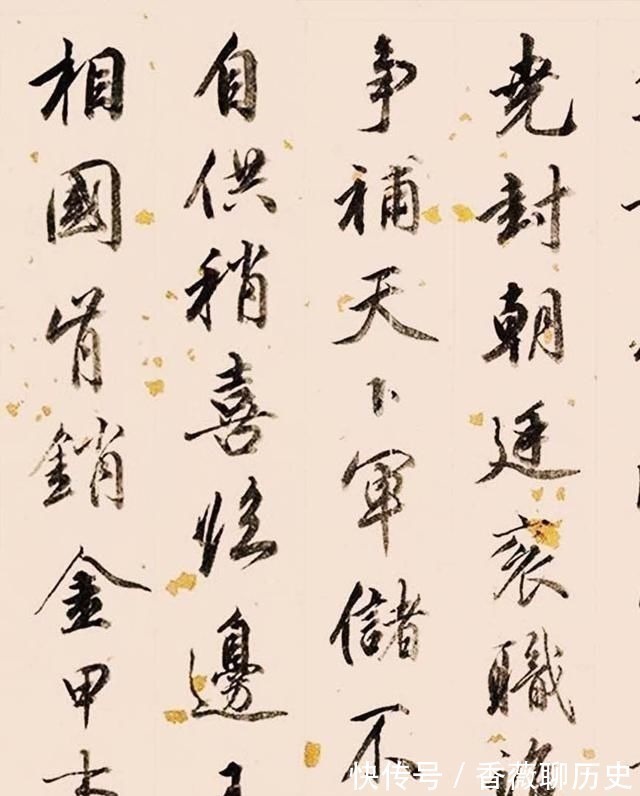 尭封朝廷衮職
争補天下軍儲不
自供稍喜临邊王
相國肯銷金甲
快传号 / 香薇聊历史